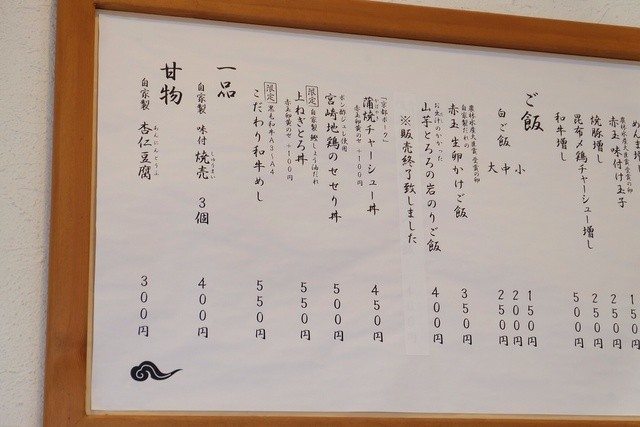 赤玉 味付け玉子
250円
焼豚増し
250円
昆布〆鶏チャーシュー増し
500円
和牛増し
ご飯
白ご飯
小
150円
中
200円
大
250円
農林水産大臣賞受賞の卵
自家製だれの
赤玉 生卵かけご飯
350円
お出汁のかかった
山芋とろろの岩のりご飯
400円
※販売終了致しました
「京都ポーク」
蒲焼チャーシュー丼
450円
赤玉卵黄のせ +100円
ポン酢ジュレ使用
宮崎地鶏のせせり丼
500円
限定 自家製鰹しょう油だれ
上ねぎとろ丼
550円
赤玉卵黄のせ +100円
限定 黒毛和牛A3〜A4
こだわり和牛めし
550円
一品
自家製 味付 焼売 3個
しゅうまい
400円
甘物
自家製 杏仁豆腐
あんにんとうふ
300円